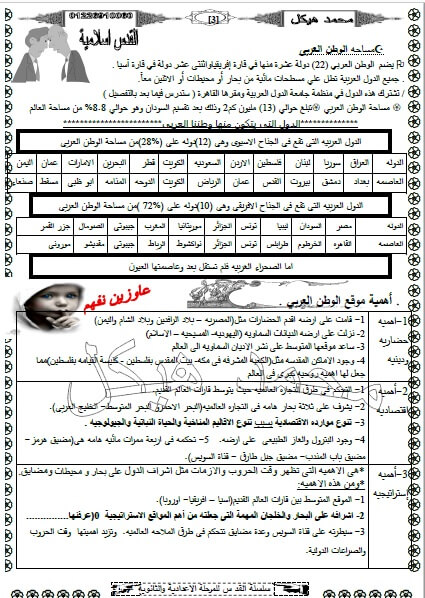 محمد هيكل
[3]
01226910060
القدس اسلامية
مساحه الوطن العربي
يضم الوطن العربي (22) دولة عشرة منها في قارة إفريقيا واثنتى عشر دولة في قارة آسيا .
. جميع الدول العربية تطل علي مسطحات مائية من بحار أو محيطات أو الاثنين معاً.
/ تشترك هذه الدول في منظمة جامعة الدول العربية ومقرها القاهرة ( ستدرس فيما بعد بالتفصيل )
مساحة الوطن العربي تبلغ حوالي (13) مليون كم2 وذلك بعد تقسيم السودان وهو حوالي 8.8% من مساحة العالم
**************الدول التي يتكون منها وطننا العربي**************
الدول العربيه التى تقع فى الجناح الاسيوى وهى (12)دوله على (28%)من مساحة الوطن العربى
الدوله العراق سوريا لبنان فلسطين الاردن السعوديه الكويت قطر البحرين الامارات عمان اليمن
العاصمه بغداد دمشق بيروت القدس عمان الرياض الكويت الدوحه المنامه ابو ظبى مسقط صنعاء
الدول العربيه التى تقع فى الجناح الافريقى وهى (10)دوله على ( 72%) من مساحة الوطن العربى
الدوله مصر السودان ليبيا تونس الجزائر موريتانيا المغرب جيبوتى الصومال جزر القمر
العاصمه القاهره الخرطوم طرابلس تونس الجزائر نواكشوط الرباط جيبوتى مقديشو مورونى
اما الصحراء الغربيه فلم تستقل بعد وعاصمتها العيون
عاوزين نفهم
. أهمية موقع الوطن العربي .
1-اهميه حضاريه ودينيه
1- قامت على ارضه اقدم الحضارات مثل(المصريه – بلاد الرافدين وبلاد الشام واليمن)
2- نزلت على ارضه الديانات السماويه (اليهوديه- المسيحيه – الاسلام)
3- ساعد موقعها المتوسط على نشر الاديان السماويه الى العالم.
4- وجود الاماكن المقدسه مثل(الكعبه المشرفه فى مكه- بيت المقدس بفلسطين – كنيسة القيامه بفلسطين)مما
جعل لها اهميه روحيه كبرى فى العالم
2-أهميه اقتصاديه
1- التحكم فى طرق التجاره العالميه حيث يتوسط قارات العالم القديم
2- يشرف على ثلاثة بحار هامه فى التجاره العالميه(البحر الاحمر- البحر المتوسط- الخليج العربى).
3- تنوع موارده الاقتصادية بسبب تنوع الأقاليم المناخية والحياة النباتية والجيولوجيه .
4- وجود البترول والغاز الطبيعي على ارضه. 5- تحكمه فى اربعة ممرات مائيه هامه هى(مضيق هرمز –
مضيق باب المندب- مضيق جبل طارق – قناة السويس).
3-أهمية إستراتيجيه
*هى الاهميه التى تظهر وقت الحروب والازمات مثل اشراف الدول على بحار و محيطات ومضايق.
*ومن هذه الاهميه:
1- الموقع المتوسط بين قارات العالم القديم(اسيا – افريقيا- اوروبا).
2- اشرافه على البحار والخلجان المهمة التى جعلته من أهم المواقع الاستراتيجية 0(عرفنها...............
3- سيطرته على قناة السويس وعدة مضايق تتحكم فى طرق الملاحه العالميه. وتزيد اهميتها وقت الحروب
والصراعات الدولية.
محمد هيكل
سلسلة القدس للمرحلة الاعدادية والثانوية